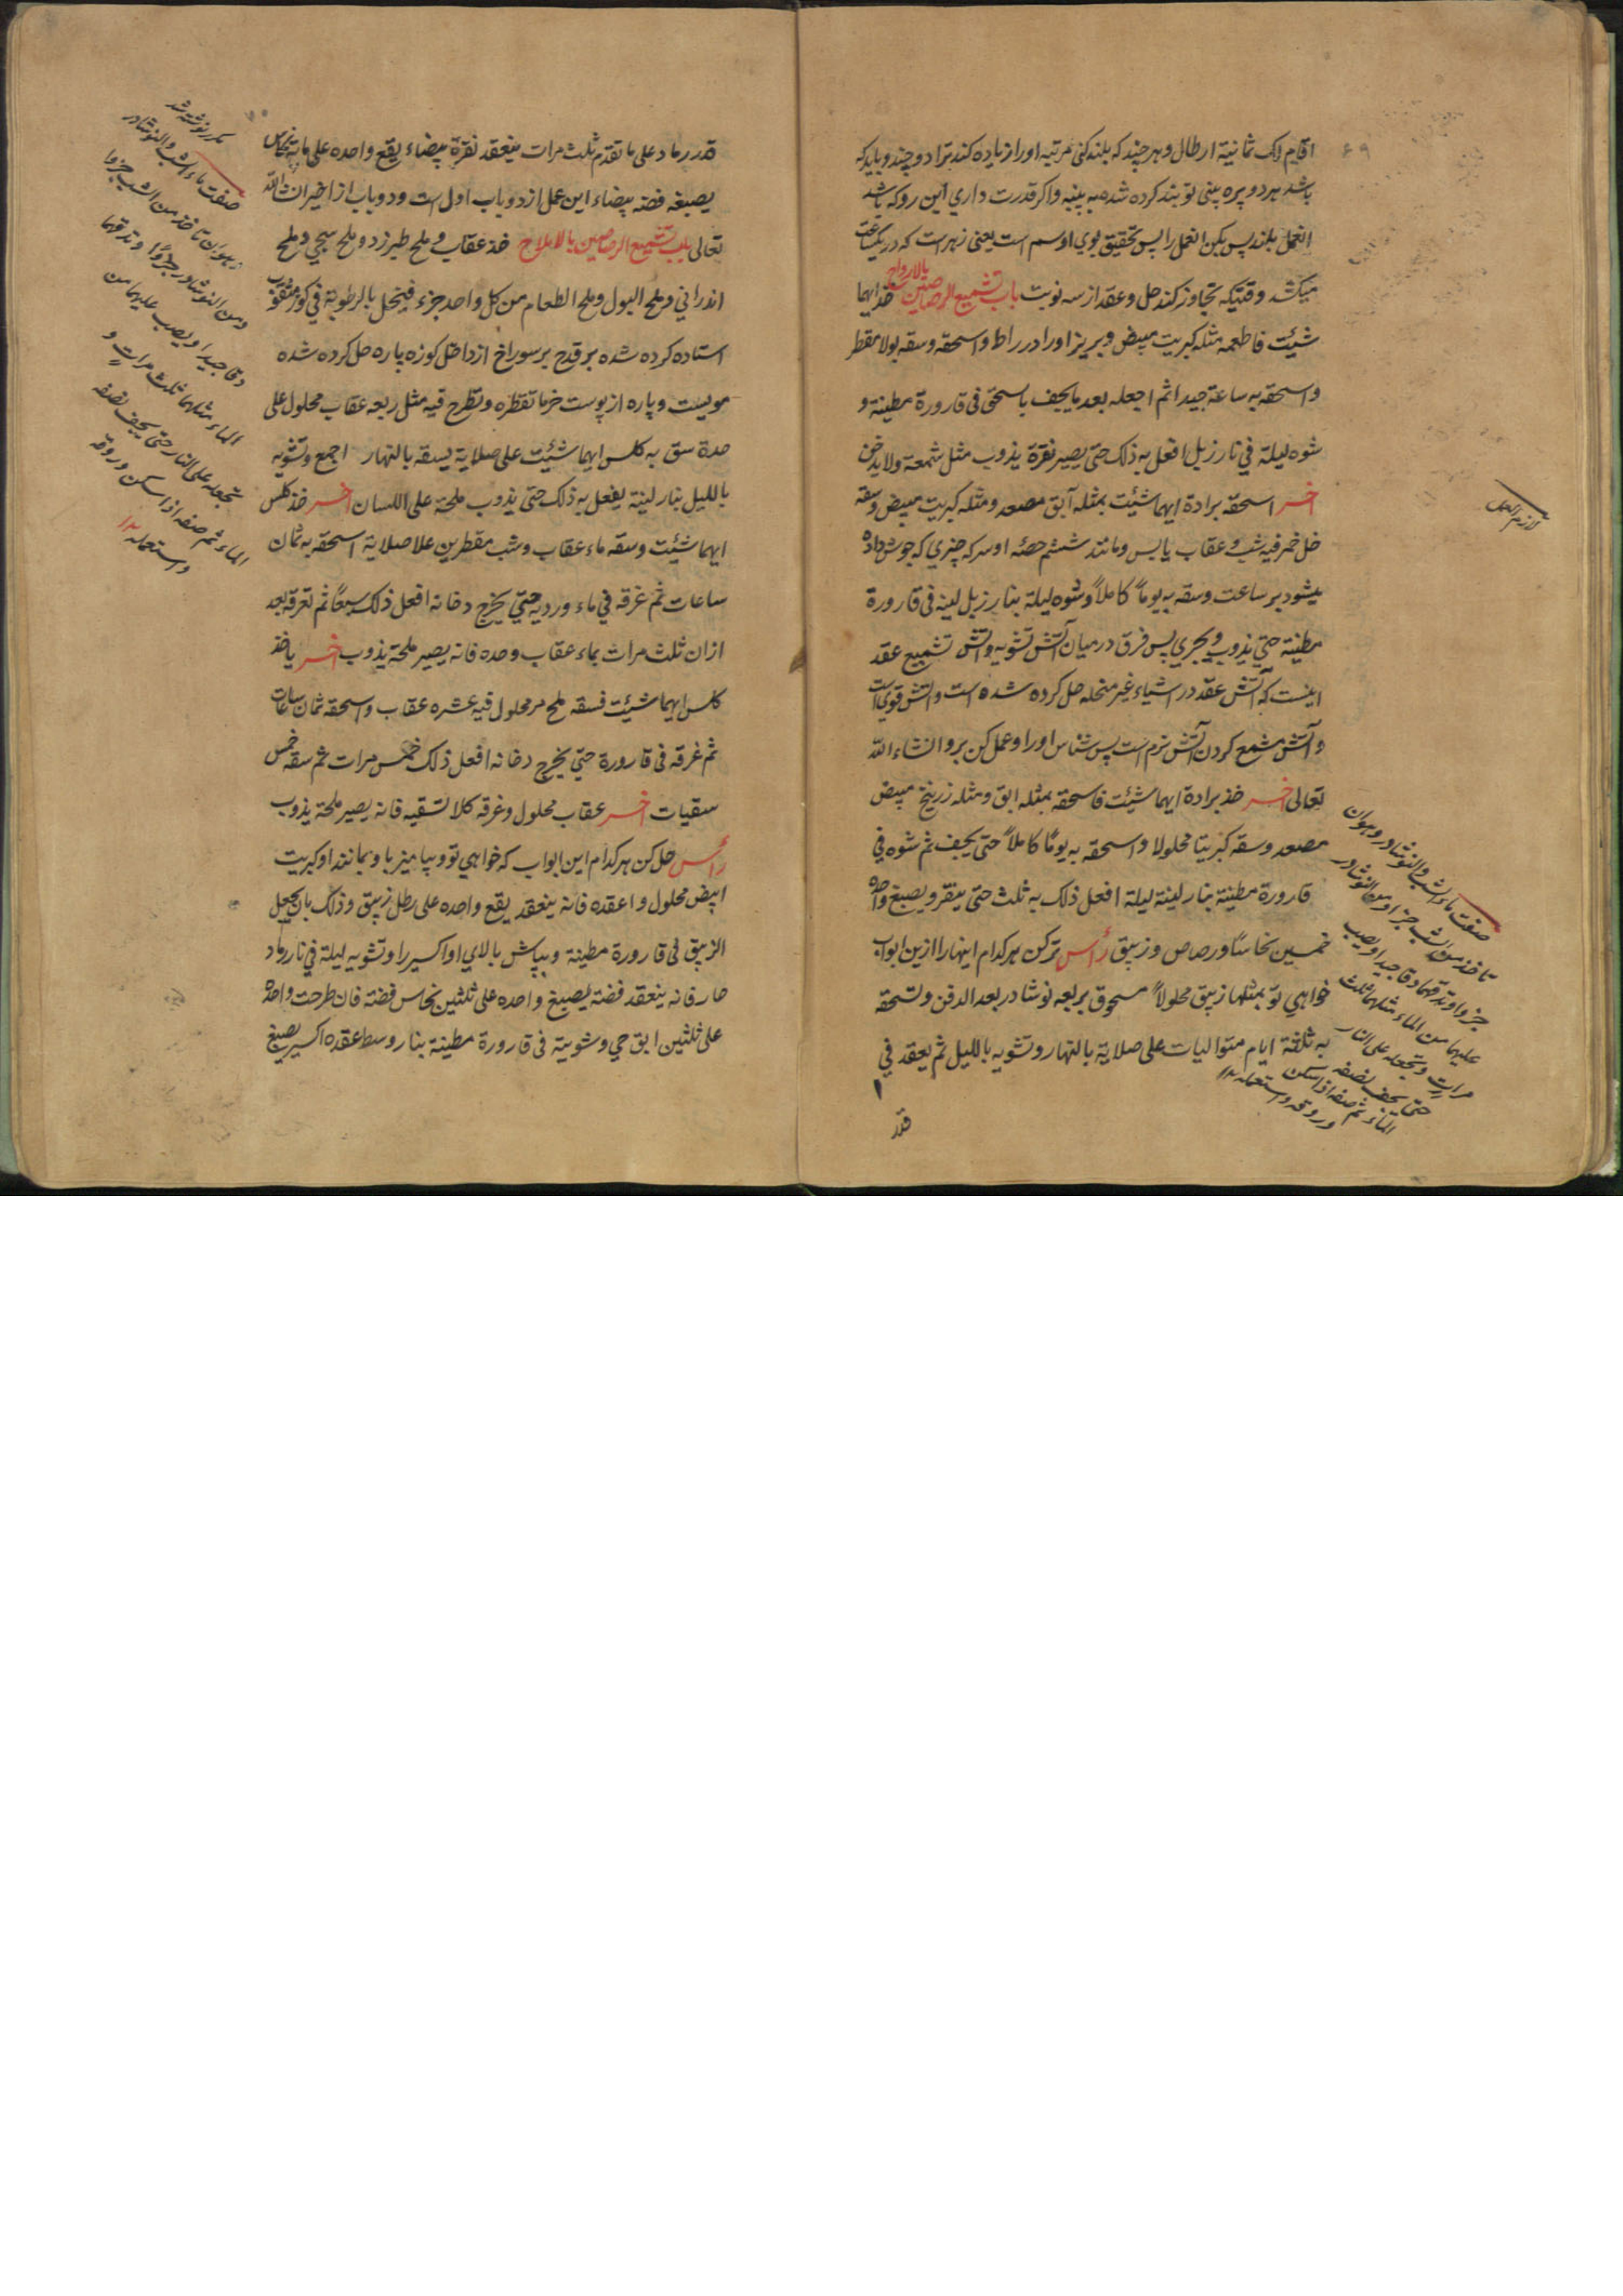 اقام لک ثمانیة ارطال و هر چند که بلند کنی مرتبه او را زیاده کند ترا دو چند و باید که
باشد هر دو پره بینی تو بند کرده شده به پنبه و اکر قدرت داری این رو که باشد
العمل بلند پس بکن العمل را پس تحقیق بوی او سم است یعنی زهر است که در یکساعت
میکشد وقتیکه تجاوز کند حل و عقد از سه نوبت باب تشمیع الرصاصین بالارواح خذ ایهما
شئیت فاطعمه مثله کبریت مبیض و بریز او را در راط و اسحقه و سقه بولا مقطر
و اسحقه به ساعة جیدا ثم اجعله بعد ما یجف باسحق فی قارورة مطینة و
شوه لیلة فی نار زبل افعل به ذلک حتی یصیر نقرة یذوب مثل شمعة ولا یدخن
اخر اسحقه برادة ایهما شئیت بمثله آبق مصعد و مثله کبریت مبیض وسقه
خل خمر فیه شب و عقاب یابس و مانند ششم حصه او سرکه چیزی که جوش داده
میشود بر ساعت و سقه به یوماً کاملاً و شوه لیلة بنار زبل لینه فی قارورة
مطینة حتی یذوب و یجری پس فرق درمیان آتش تشویه و آتش تشمیع عقد
اینست که آتش عقد در اشیاء غیر منحله حل کرده شده است و آتش قوی است
و آتش مشمع کردن آتش نرم است پس شناس او را و عمل کن برو انشاء الله
تعالی اخر خذ برادة ایهما شئیت فاسحقه بمثله ابق و مثله زرنیخ مبیض
مصعد و سقه کبریتا محلولا و اسحقه به یوماً کاملاً حتی یجف ثم شوه فی
قارورة مطینة بنار لینة لیلة افعل ذلک به ثلث حتی ینقر و یصبغ واحده
خمسین نحاسًا و رصاص و زیبق رأس ترکن هر کدام اینها را ازین ابواب
خواهی تو بمثلها زیبق محلولاً مسحوق بربعه نوشادر بعد الدفن و تسحقه
به ثلثة ایام متوالیات علی صلایة بالنهار و تشویه باللیل ثم یعقد فی
قدر
صفت ماء الشب والنوشادر و هو ان
تاخذ من الشب جزا و من النوشادر
جزوا و تدقهما دقا جیدا و یصب
علیهما من الماء مثلهما ثلث
مرات و تجعله علی النار
حتی یجف نصفه
الماء ثم صفه اذا سکن
و روقه و استعمله ۱۲
قدر رماد علی ما تقدم ثلث مرات ینعقد نقرة بیضاء یقع واحده علی مایة نحاس
یصبغه فضه بیضاء این عمل از دو باب اول است و دو باب از اخیر ان شاء الله
تعالی باب تشمیع الرصاصین بالاملاح خذ عقاب و ملح طبرزد و ملح سجی و ملح
اندرانی و ملح البول و ملح الطعام من کل واحد جزء فینحل بالرطوبة فی کوز مثقوب
استاده کرده شده بر قدح بر سوراخ از داخل کوزه پاره حل کرده شده
مویست و پاره از پوست خرما تقطره و تطرح فیه مثل ربعه عقاب محلول علی
حدة سق به کلس ایهما شئیت علی صلایة یسقه بالنهار اجمع و تشویه
باللیل بنار لینة یفعل به ذلک حتی یذوب ملحة علی اللسان اخر خذ کلس
ایهما شئیت و سقه ماء عقاب و شب مقطرین علا صلایة اسحقه به ثمان
ساعات ثم غرقه فی ماء وردیه حتی یخرج دخانه افعل ذلک سبعاً ثم تغرقه بعد
ازان ثلث مرات بماء عقاب وحده فانه یصیر ملحة یذوب اخر یاخذ
کلس ایهما شئیت فسقه ملح مر محلول فیه عشره عقاب و اسحقه ثمان ساعات
ثم غرقه فی قارورة حتی یخرج دخانه افعل ذلک خمس مرات ثم سقه خمس
سقیات اخر عقاب محلول و غرقه کلا تسقیه فانه یصیر ملحة یذوب
رأس حل کن هر کدام این ابواب که خواهی تو و بیامیز با و بمانند او کبریت
ابیض محلول و اعقده فانه ینعقد یقع واحده علی رطل زیبق و ذلک بان یجعل
الزیبق فی قارورة مطینة و بپاش بالای او اکسیر را و تشویه لیلة فی نار رماد
حار فانه ینعقد فضة یصبغ واحده علی ثلثین نحاس فضة فان طرحت واحده
علی ثلثین ابق حی و شویته فی قارورة مطینة بنار وسط اعقده اکسیر یصبغ
مکرر نوشته شد
صفت ماء الشب والنوشادر
و هو ان تاخذ من الشب جزوا
و من النوشادر جزوًا و تدقهما
دقا جیدا و یصب علیهما من
الماء مثلهما ثلث مرات و
تجعله علی النار حتی یجف نصفه
الماء ثم صفه اذا سکن و روقه
و استعمله ۱۲